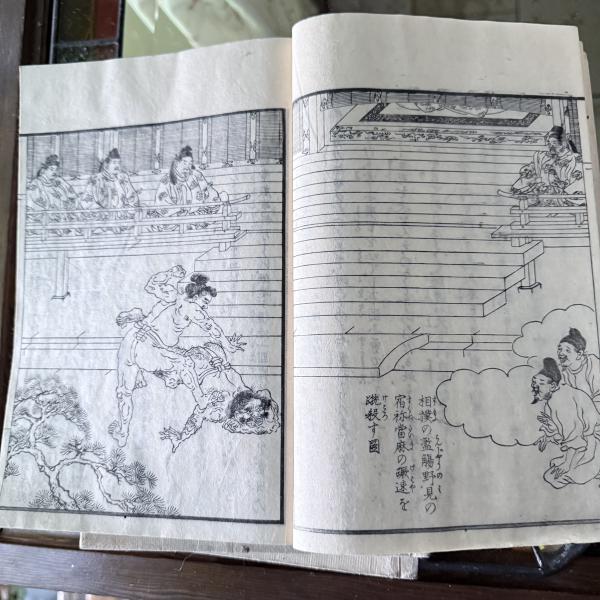 相撲の濫觴野見の
宿祢當麻の蹶速を
蹴殺す圖